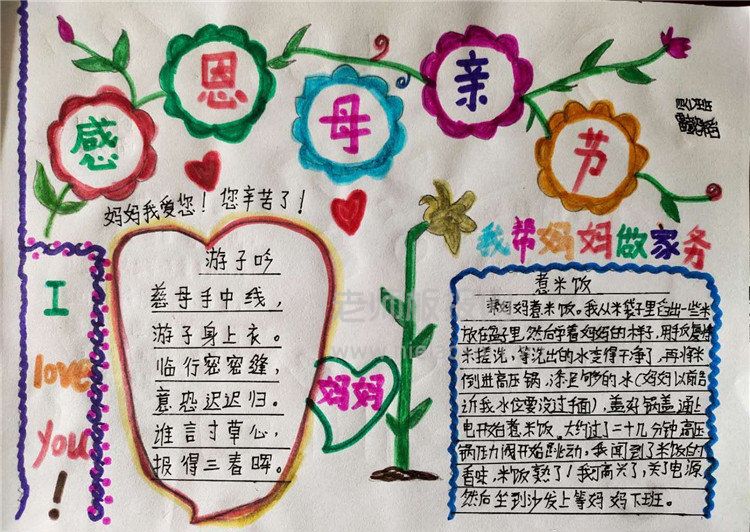 感恩母亲节
妈妈我爱您！您辛苦了！
I
love
you
!
游子吟
慈母手中线，
游子身上衣。
临行密密缝，
意恐迟迟归。
谁言寸草心，
报得三春晖。
妈妈
我帮妈妈做家务
煮米饭
妈妈煮米饭。我从米袋子里舀出一些米
放在盆里，然后学着妈妈的样子，用手反复
米搓洗，等洗出的水变得干净了，再将米
倒进高压锅，添足够的水（妈妈以前告
诉我水位要没过手面），盖好锅盖通上
电开始煮米饭。大约过了二十几分钟高压
锅压力阀开始跳动，我闻到了米饭的
香味，米饭熟了！我可高兴了，关了电源
然后坐到沙发上等妈妈下班。